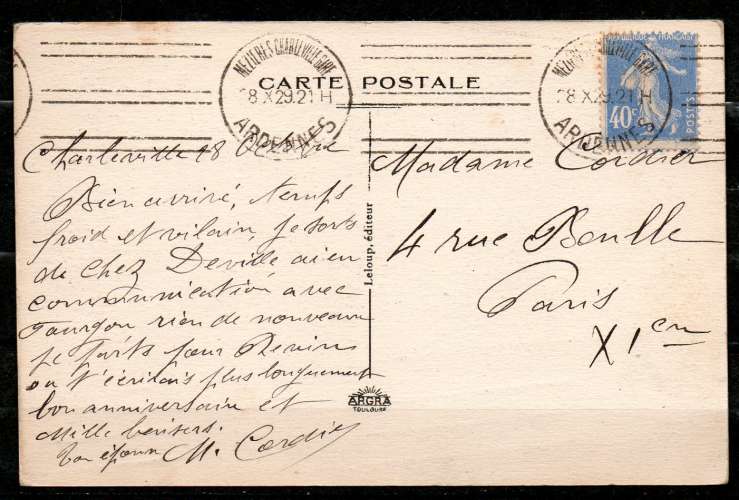 MEZIERES CHARLEVILLE GARE
28 X 29. 21 H
ARDENNES
CARTE POSTALE
MEZIERES CHARLEVILLE GARE
28 X 29. 21 H
ARDENNES
40c
POSTES
Charleville 28 Octobre
Bien arrivé, temps
froid et vilain, je sors
de chez Deville ai eu
communication avec
rien de nouveau
je pars pour Revin
ou t'écrirais plus longuement
bon anniversaire et
Mille baisers.
Ton époux M. Cordier
Leloup, éditeur
ARGRA
TOULOUSE
Madame Cordier
4 rue Boulle
Paris
XI em